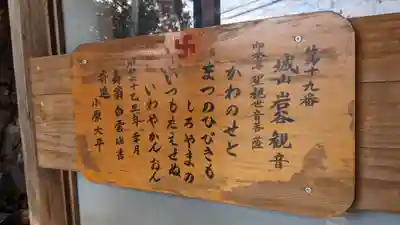 第十九番
城山 岩谷観音
御本尊 聖観世音菩薩
かわのせと
まつのひびきも
しろやまの
いつもたえせぬ
いわやかんおん
昭和五十乙卯年 季月
白雲山書
奇進 小原大平